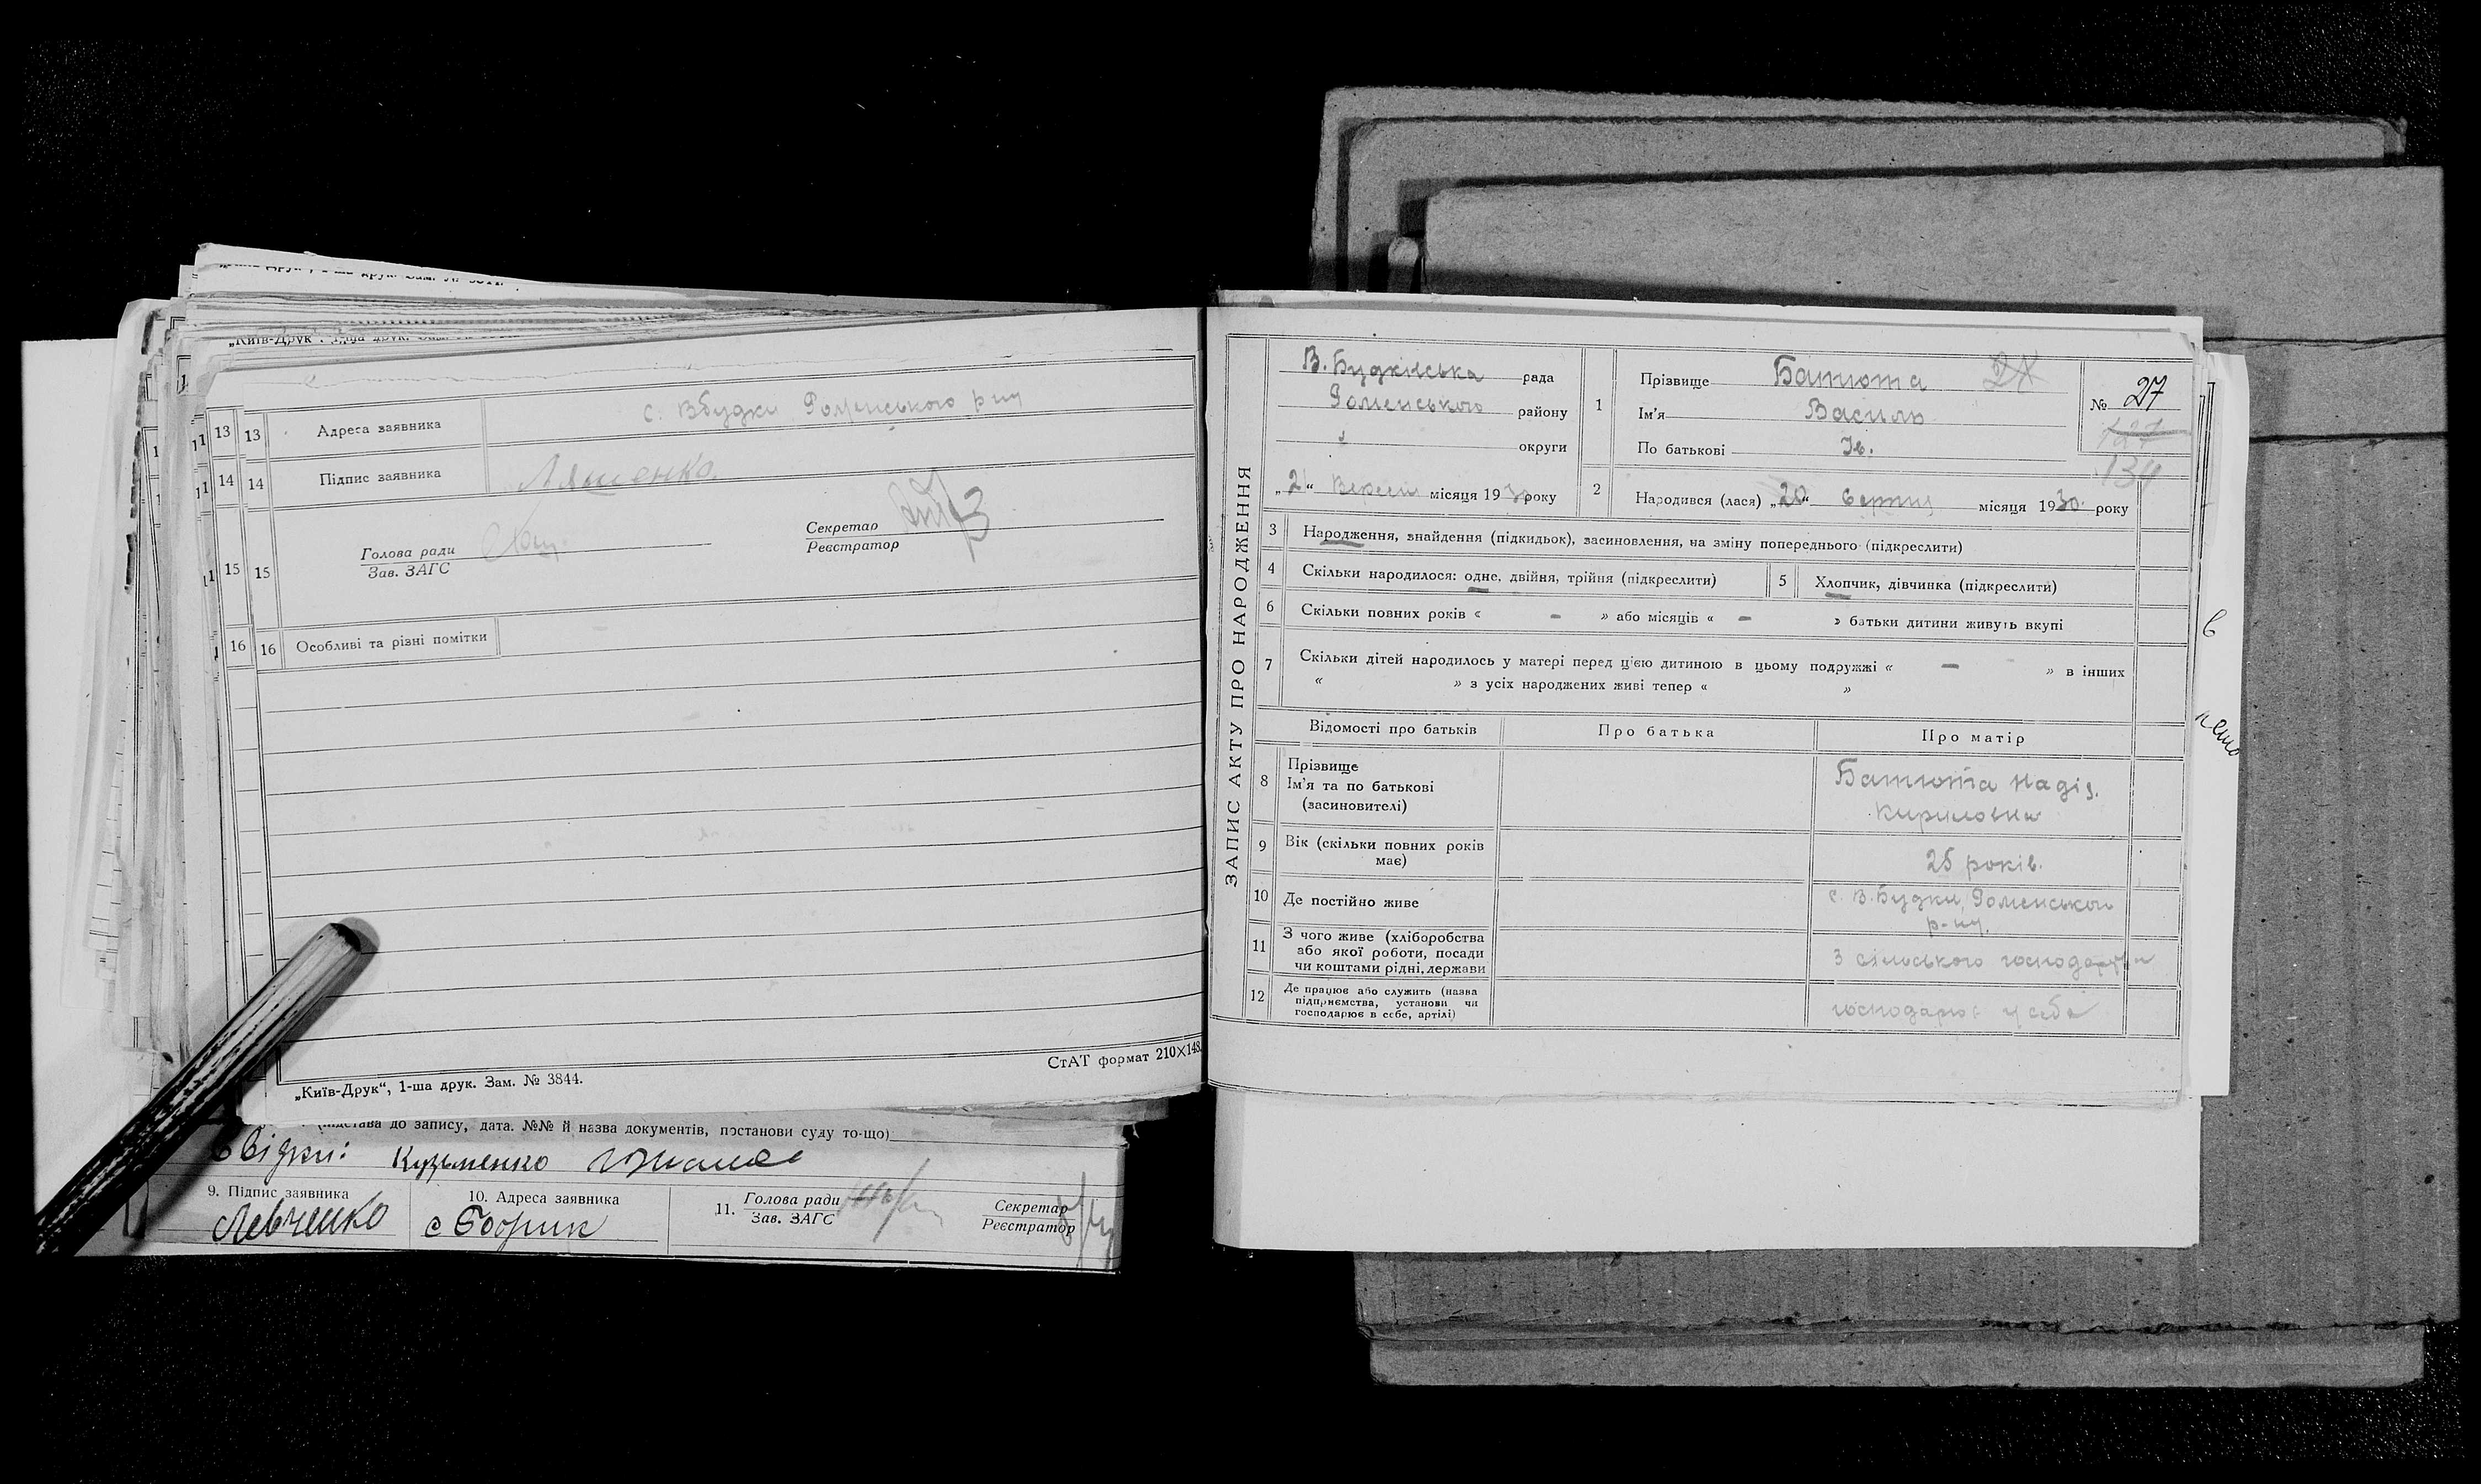 „Київ-Друк", 1-ша друк. Зам.
13 13 Адреса заявника с. Вбудки Роменського р-ну
14 14 Підпис заявника Ляшенко.
15 15 Голова ради
Зав. ЗАГС
Секретар
Реєстратор
16 16 Особливі та різні помітки
СтАТ формат 210×148.
„Київ-Друк“, 1-ша друк. Зам. № 3844.
(підстава до запису, дата. №№ й назва документів, постанови суду то-що)
Свідки: Кузьменко
9. Підпис заявника
Левченко
10. Адреса заявника
с Бобрик
11. Голова ради
Зав. ЗАГС
Секретар
Реєстратор
ЗАПИС АКТУ ПРО НАРОДЖЕННЯ
В. Будківська рада
Роменського району
округи
„2“ Вересня місяця 1930 року
1 Прізвище Батюта
Ім'я Василь
По батькові Ів.
№ 27
127
134
2 Народився (лася) „20“ Серпня місяця 1930. року
3 Народження, знайдення (підкидьок), засиновлення, на зміну попереднього (підкреслити)
4 Скільки народилося: одне, двійня, трійня (підкреслити)
5 Хлопчик, дівчинка (підкреслити)
6 Скільки повних років « – » або місяців « – » батьки дитини живуть вкупі
7 Скільки дітей народилось у матері перед цією дитиною в цьому подружжі « – » в інших
« » з усіх народжених живі тепер « »
Відомості про батьків Про батька Про матір
8 Прізвище
Ім'я та по батькові
(засиновителі)
Батюта Надія
Кириловна
9 Вік (скільки повних років
має)
25 років.
10 Де постійно живе
с. В. Будки, Роменського
р-ну.
11 З чого живе (хліборобства
або якої роботи, посади
чи коштами рідні, держави
З сільського господарства
12 Де працює або служить (назва
підприємства, установи чи
господарює в себе, артілі)
господарює у себе